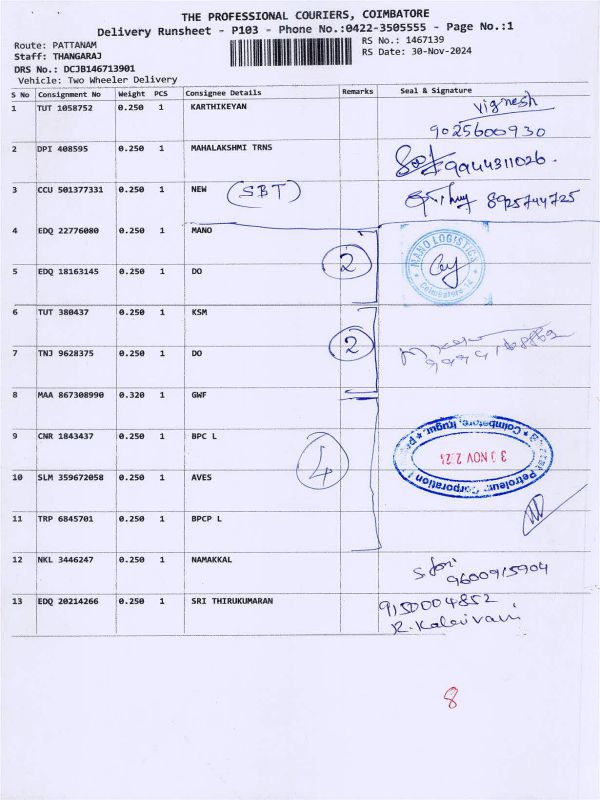 THE PROFESSIONAL COURIERS, COIMBATORE
Delivery Runsheet - P103 - Phone No.:0422-3505555 - Page No.:1
Route: PATTANAM
RS No.: 1467139
Staff: THANGARAJ
RS Date: 30-Nov-2024
DRS No.: DCJB146713901
Vehicle: Two Wheeler Delivery
S No Consignment No Weight PCS Consignee Details Remarks Seal & Signature
1 TUT 1058752 0.250 1 KARTHIKEYAN Vignesh
9025600930
2 DPI 408595 0.250 1 MAHALAKSHMI TRNS 9944311026.
3 CCU 501377331 0.250 1 NEW (SBT) 8925744725
4 EDQ 22776080 0.250 1 MANO
MANO LOGISTICS
Coimbatore
2
5 EDQ 18163145 0.250 1 DO
6 TUT 380437 0.250 1 KSM
2
7 TNJ 9628375 0.250 1 DO
8 MAA 867308990 0.320 1 GWF
9 CNR 1843437 0.250 1 BPC L
Coimbatore, Irugur
30 NOV 2
Petroleum Corporation
4
10 SLM 359672058 0.250 1 AVES
11 TRP 6845701 0.250 1 BPCP L
12 NKL 3446247 0.250 1 NAMAKKAL
9600915904
13 EDQ 20214266 0.250 1 SRI THIRUKUMARAN 9150004852
R. Kalaivani
8